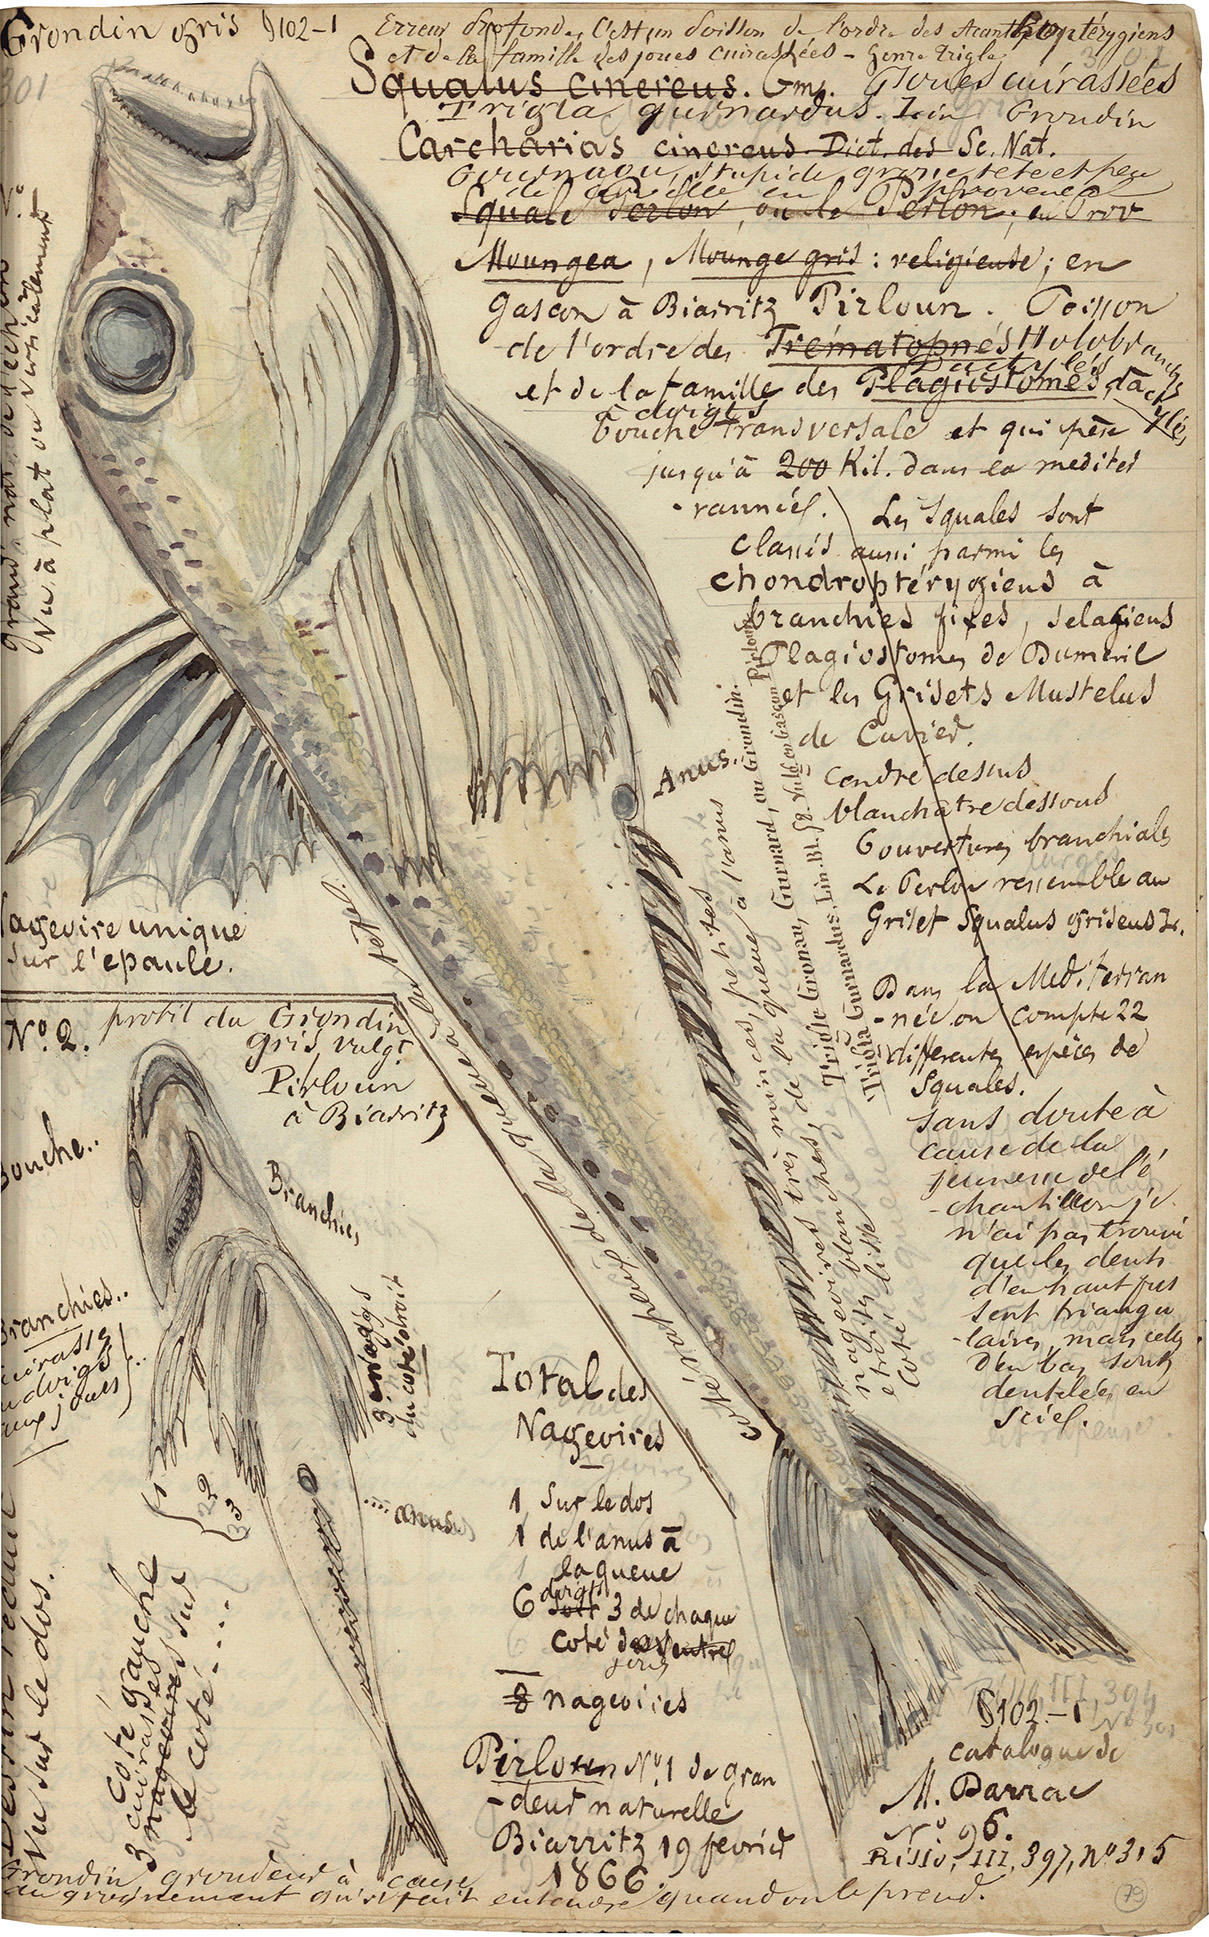 Grondin gris §102-1
301
Erreur profonde, C'est un poisson de l'ordre des Acanthoptérygiens
et de la famille des joues cuirassées - Genre trigle
Squalus cinereus. Gm. Joues cuirassées
Trigla gurnardus. Lin Grondin
Carcharias cinereus. Dict. des Sc. Nat.
Gournaou, stupide grosse tête et peu
de cervelle en provence
Squale Perlon, ou le Perlon; en Prov
Moungea, Mounge gris: religieuse; en
gascon à Biarritz Pirloun. Poisson
de l'ordre des Trématopnés Holobranches
Dactylés
et de la famille des Plagiostomes, dactylés,
à doigts
bouche transversale et qui pèse
jusqu'à 200 Kil. dans la mediter
-rannée.
Les squales sont
classés aussi parmi les
chondroptérygiens à
branchies fixes, selagiens
Plagiostomes de Dumeril
et les Grisets Mustelus
de Cuvier.
Cendré dessus
blanchatre dessous
6 ouvertures branchiales
Le Perlon ressemble au
Griset Squalus griseus L.
Dans la Mediterran
-née on compte 22
differentes espèces de
Squales.
Sans doute à
cause de la
jeunesse de l'é
-chantillon je
n'ai pas trouvé
que les dents
d'en haut fus
sent triangu
-laires, mais celles
d'en bas sont
dentelées en
scie.
Grand. nat. de l'échan
Vu à plat ou verticalement
Anus.
Pirloun
nageoires très minces, petites
et de la queue à l'anus
blanches,
Trigle Gronau, Gurnard, ou Grondin.
Trigla Gurnardus. Lin. Bl. 58. Vulg. en Gascon
et très lisse
Coté
Côté rapeux de la queue à la tête.
Nageoire unique
sur l'epaule.
N° 2. profil du Grondin
gris vulgt
Pirloun
à Biarritz
Bouche..
Branchies
Branchies..
cuirasse
aux joues
3 doigts
du coté droit
22
33
....anus.
Coté gauche
cuirassés
3 nageoires sur
le coté....
Dessin réduit
Vu sur le dos.
Total des
Nageoires
1 Sur le dos
1 de l'anus à
la queue
doigts
6 soit 3 de chaque
coté du ventre
joues
8 nageoires
Pirloun N° 1 de gran
-deur naturelle
Biarritz 19 fevrier
1866.
§102-1
catalogue de
M. Darrac
N° 96.
Risso, III, 397, n° 315
Grondin grondeur à cause
du grognement qu'il fait entendre quand on le prend.
79